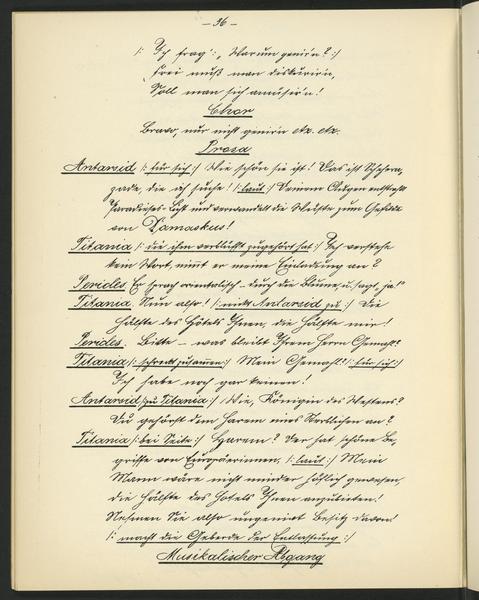 - 36 -
/: Ich frag': „Warum genir'n? :/
Frei muß man diskurir'n,
Soll man sich amüsir'n!
Chor
Bravo, nur nicht genir'n etc. etc.
Prosa
Antarsid /: für sich :/ Wie schön sie ist! Das ist Schehera-
zade, die ich suche! /: laut :/ Deinem Augen entstrahlt
Paradieses-Licht und verwandelt die Wüste zum Gefilde
von Damaskus!
Titania /: die ihm verblüfft zugehört hat :/ Ich verstehe
kein Wort, nimmt er meine Einladung an?
Pericles Er sprach orientalisch - durch die Blume, u. sagt „ja!"
Titania. Nun also! /: nickt Antarsid zu :/ Die
Hälfte des Hôtels Ihnen, die Hälfte mir!
Pericles. Bitte - was bleibt Ihrem Herrn Gemahl?
Titania /: schrickt zusammen :/ Mein Gemahl? /: für sich :/
Ich habe noch gar keinen!
Antarsid /: zu Titania :/ Wie, Königin des Westens?
Du gehörst dem Harem eines Sterblichen an?
Titania /: bei Seite :/ Harem? Der hat schöne Be-
griffe von Europäerinnen, /: laut :/ Mein
Mann wäre nicht minder höflich gewesen
die Hälfte des Hotels Ihnen anzubieten!
Nehmen Sie also ungenirt Besitz davon!
/: macht die Geberde der Entlassung :/
Musikalischer Abgang